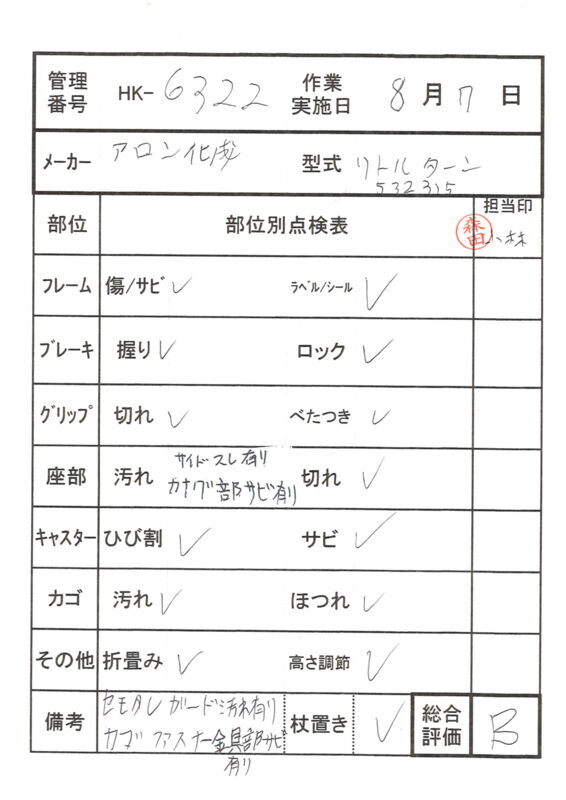 管理番号 HK-6322 作業実施日 8月7日
メーカー アロン化成 型式 リトルターン
532315
部位 部位別点検表 担当印
森田 小林
フレーム 傷/サビ ✓ ラベル/シール ✓
ブレーキ 握り ✓ ロック ✓
グリップ 切れ ✓ べたつき ✓
座部 汚れ サイドスレ有り 切れ ✓
カナグ部サビ有り
キャスター ひび割 ✓ サビ ✓
カゴ 汚れ ✓ ほつれ ✓
その他 折畳み ✓ 高さ調節 ✓
備考 セモタレガード汚れ有り 杖置き ✓ 総合評価 B
カゴ ファスナー金具部サビ
有り